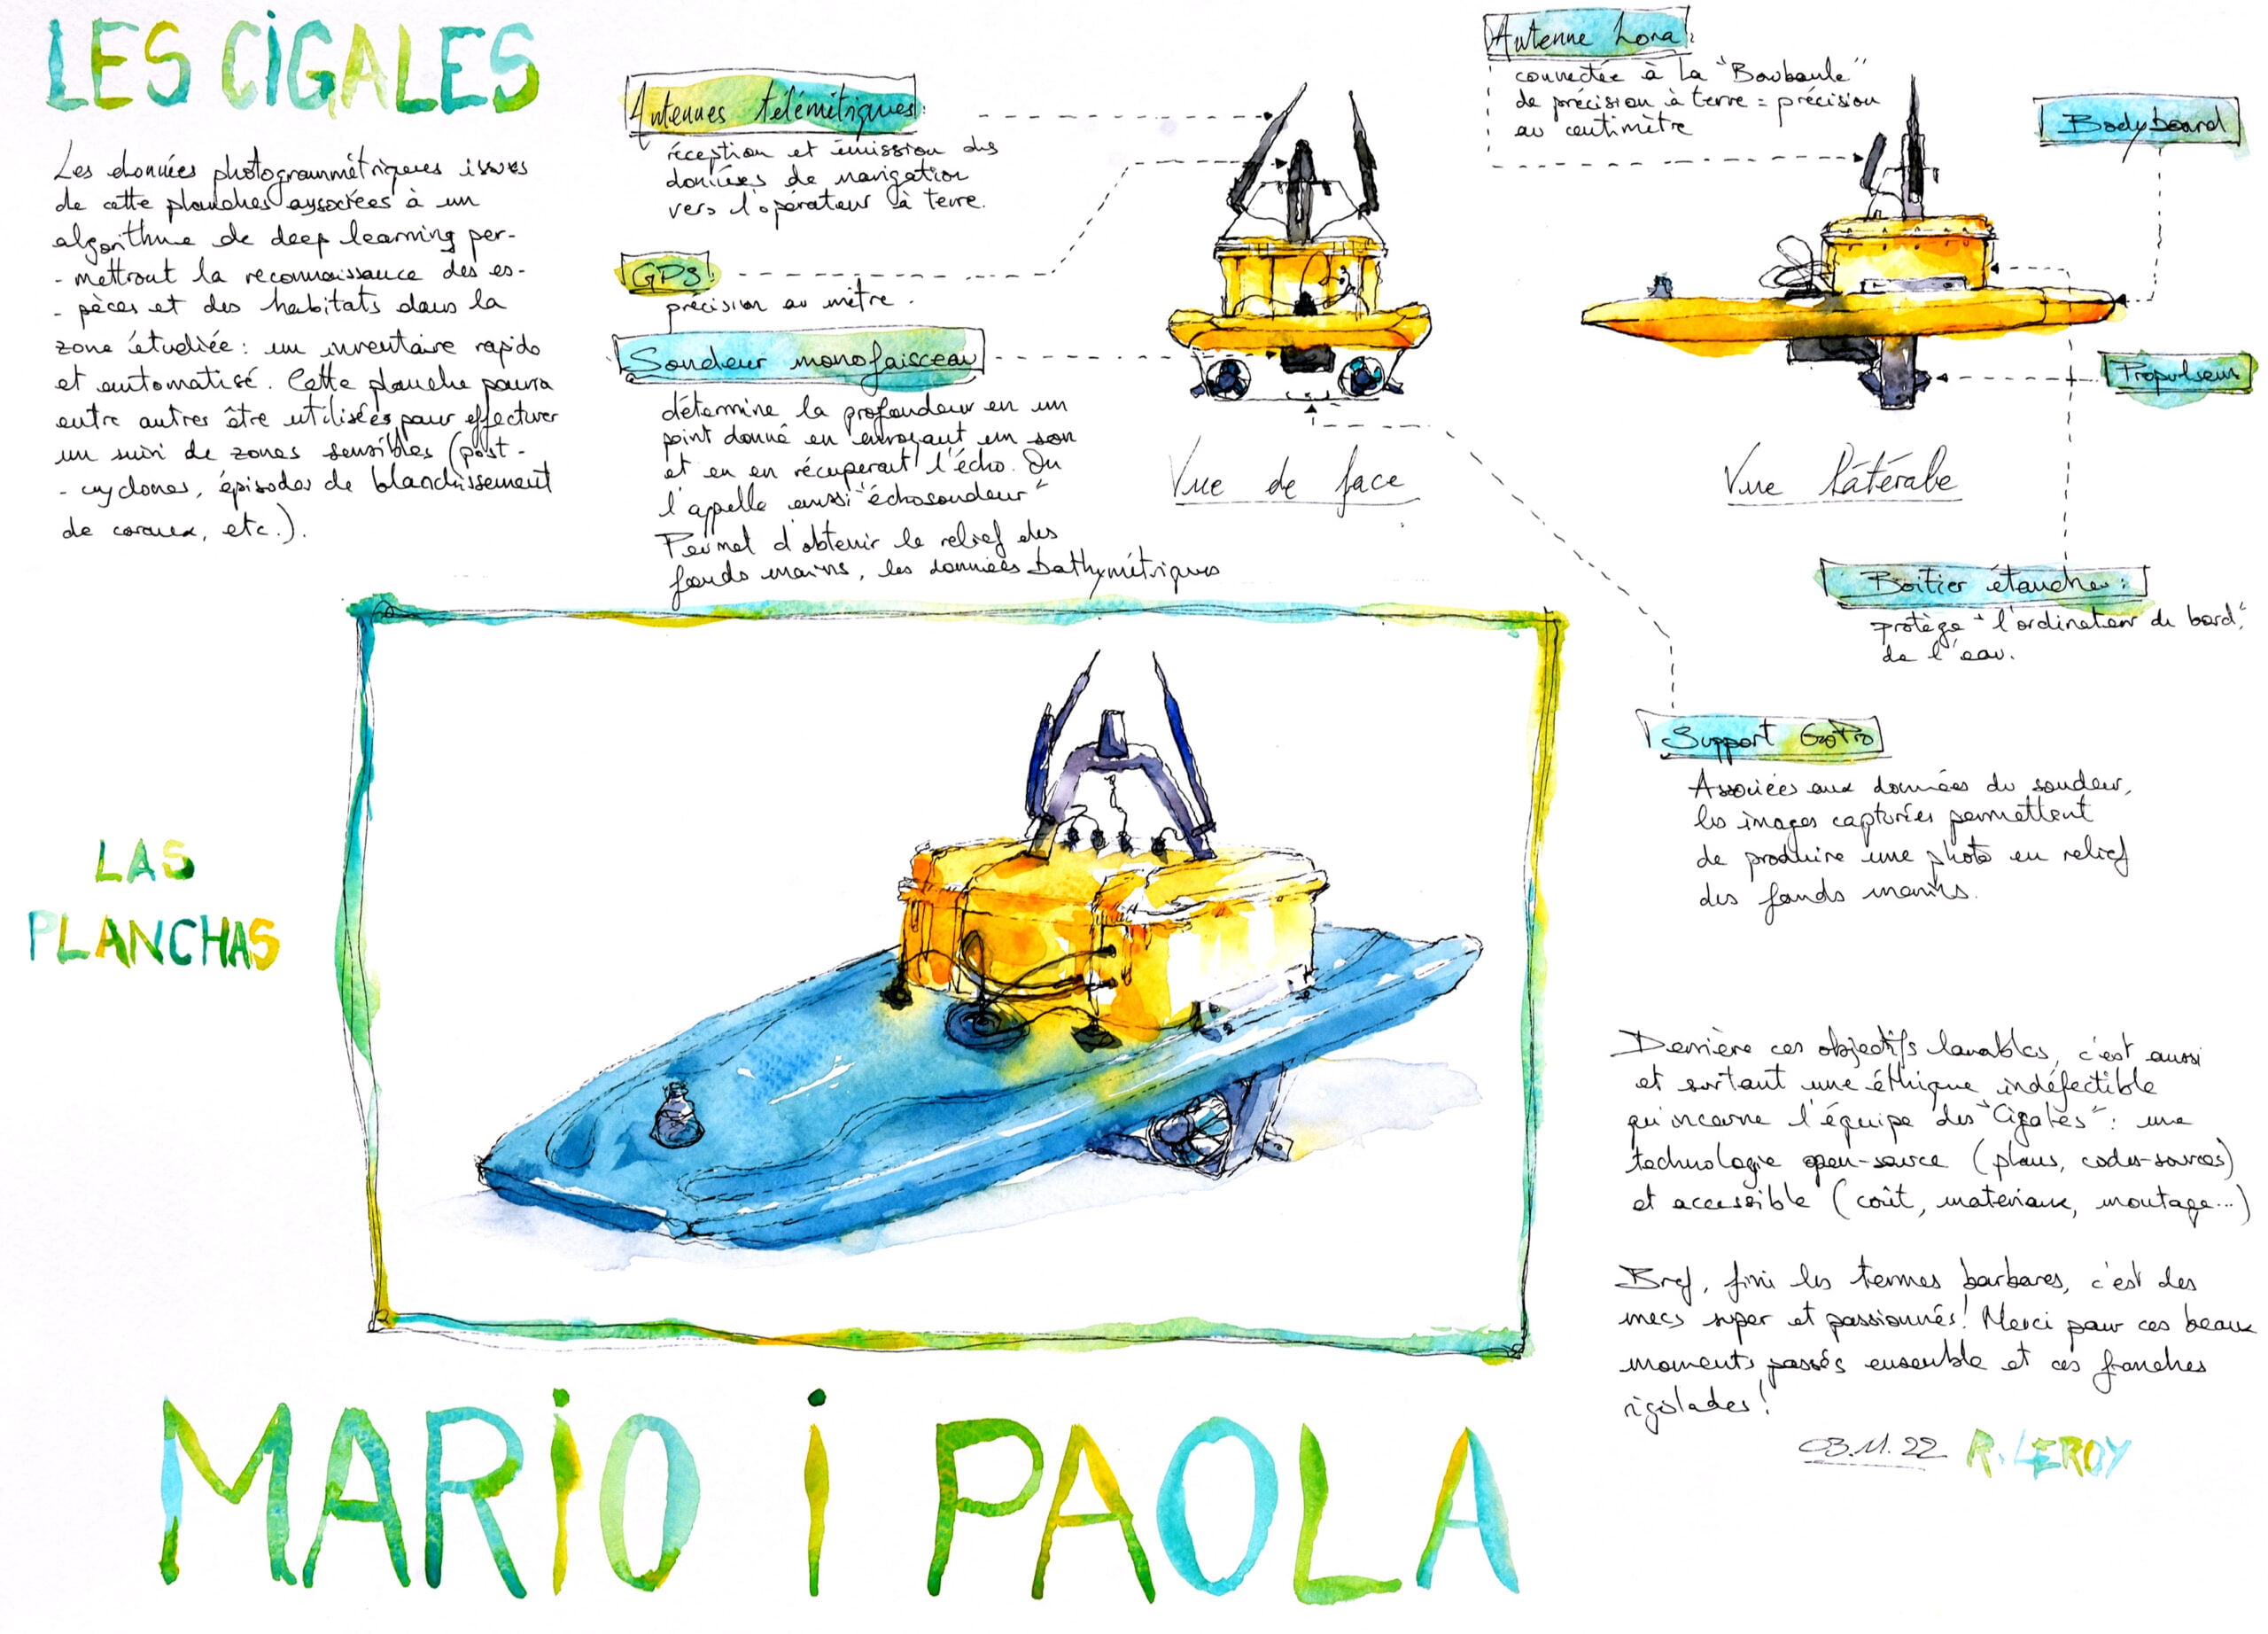 LES CIGALES
Les données photogrammétriques issues
de cette planches associées à un
algorithme de deep learning per-
- mettront la reconnaissance des es-
- pèces et des habitats dans la
zone étudiée : un inventaire rapide
et automatisé. Cette planche pourra
entre autres être utilisées pour effectuer
un suivi de zones sensibles (post-
- cyclones, épisodes de blanchissement
de coraux, etc.).
Antennes télémétriques :
réception et émission des
données de navigation
vers l'opérateur à terre.
GPS :
précision au mètre.
Sondeur monofaisceau
détermine la profondeur en un
point donné en envoyant un son
et en en récuperant l'écho. On
l'appelle aussi "échosondeur"
Permet d'obtenir le relief des
fonds marins, les données bathymétriques
Vue de face
Antenne Lora :
connectée à la "Bouboule"
de précision à terre = précision
au centimètre
Bodyboard
Propulseur
Vue latérale
Boîtier étanche :
protège "l'ordinateur de bord"
de l'eau.
Support GoPro
Associées aux données du sondeur,
les images capturées permettent
de produire une photo en relief
des fonds marins.
LAS
PLANCHAS
Derrière ces objectifs louables, c'est aussi
et surtout une éthique indéfectible
qu'incarne l'équipe des "Cigales" : une
technologie open-source (plans, codes-sources)
et accessible (coût, matériaux, montage...)
Bref, fini les termes barbares, c'est des
mecs super et passionnés ! Merci pour ces beaux
moments passés ensemble et ces franches
rigolades !
03.11.22 R. LEROY
MARIO i PAOLA